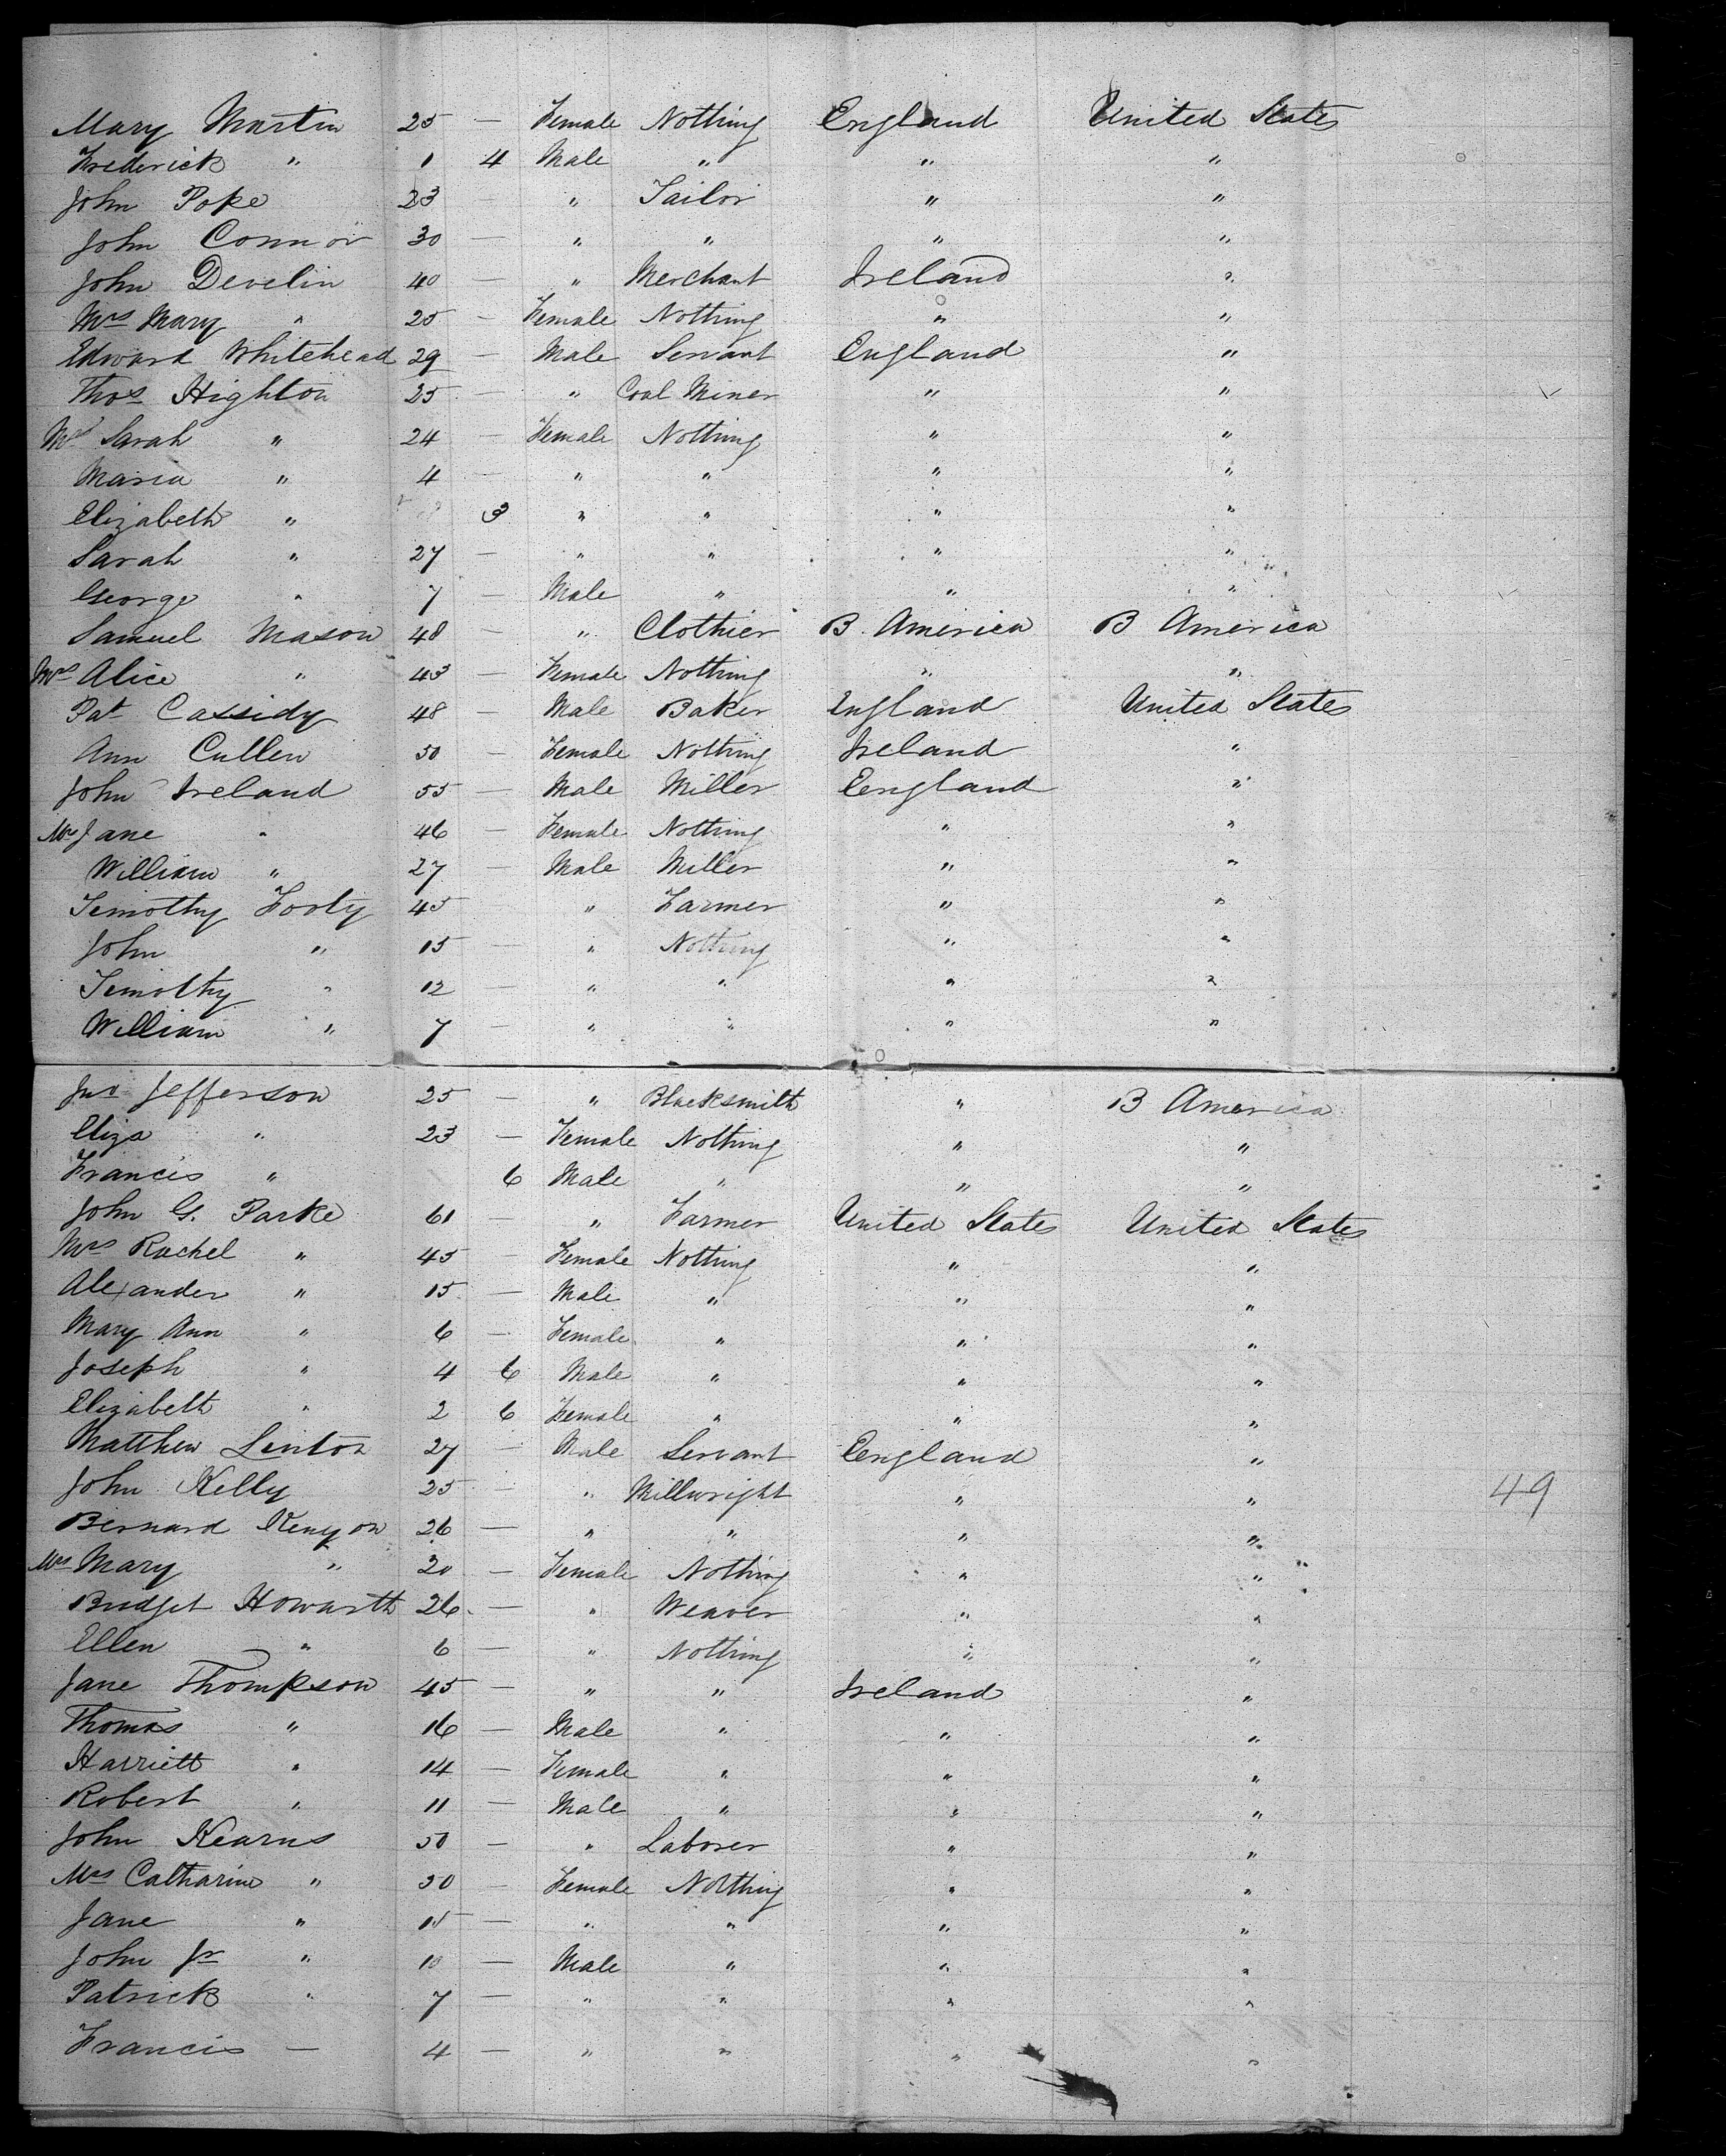 Mary Martin 25 — Female Nothing England United States
Frederick " 1 4 Male " " "
John Pope 23 — " Tailor " "
John Connor 30 — " " " "
John Develin 40 — " Merchant Ireland "
Mrs Mary " 25 — Female Nothing " "
Edward Whitehead 29 — Male Servant England "
Thos Highton 25 — " Coal Miner " "
Mrs Sarah " 24 — Female Nothing " "
Maria " 4 — " " " "
Elizabeth " 3 " " " "
Sarah " 27 — " " " "
George " 7 — Male " " "
Samuel Mason 48 — " Clothier B. America B America
Mrs Alice " 43 — Female Nothing " "
Pat Cassidy 48 — Male Baker England United States
Ann Cullen 50 — Female Nothing Ireland "
John Ireland 55 — Male Miller England "
Mrs Jane " 46 — Female Nothing " "
William " 27 — Male Miller " "
Timothy Footy 45 — " Farmer " "
John " 15 — " Nothing " "
Timothy " 12 — " " " "
William " 7 — " " " "
Jno Jefferson 25 — " Blacksmith " B America
Eliza " 23 — Female Nothing " "
Francis " 6 Male " " "
John G. Parke 61 — " Farmer United States United States
Mrs Rachel " 45 — Female Nothing " "
Alexander " 15 — Male " " "
Mary Ann " 6 — Female " " "
Joseph " 4 6 Male " " "
Elizabeth " 2 6 Female " " "
Matthew Linton 27 — Male Servant England "
John Kelly 25 — " Millwright " " 49
Bernard Kenyon 26 — " " " "
Mrs Mary " 20 — Female Nothing " "
Bridget Howarth 26 — " Weaver " "
Ellen " 6 — " Nothing " "
Jane Thompson 45 — " " Ireland "
Thomas " 16 — Male " " "
Harriett " 14 — Female " " "
Robert " 11 — Male " " "
John Kearns 50 — " Laborer " "
Mrs Catharine " 50 — Female Nothing " "
Jane " 15 — " " " "
John Jr " 10 — Male " " "
Patrick " 7 — " " " "
Francis — 4 — " " " "